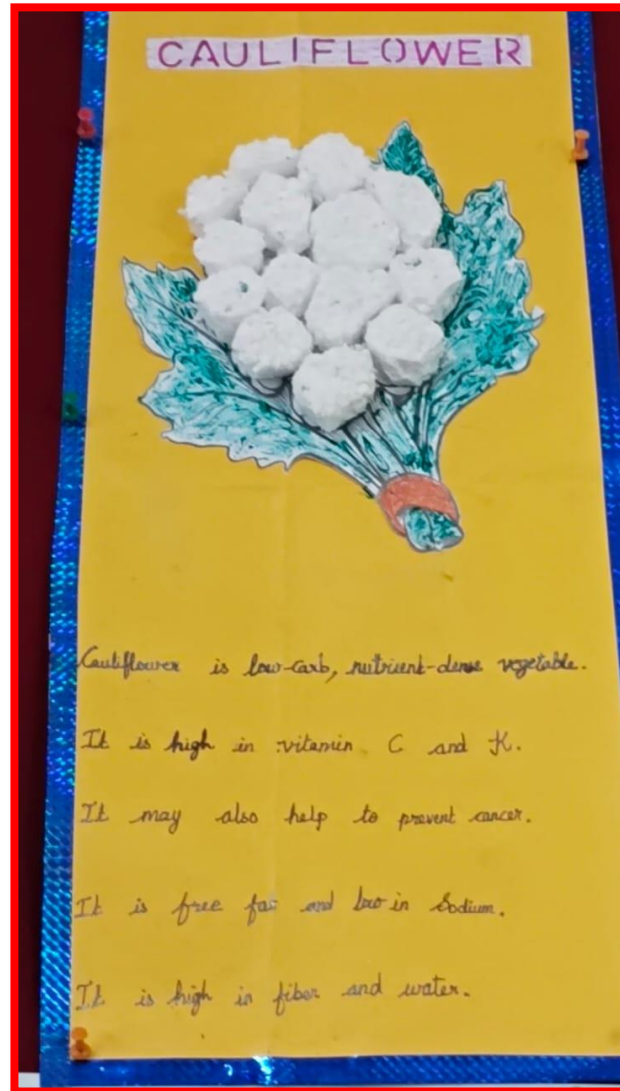 CAULIFLOWER
Cauliflower is low-carb, nutrient-dense vegetable.
It is high in vitamin C and K.
It may also help to prevent cancer.
It is free fat and low in Sodium.
It is high in fiber and water.